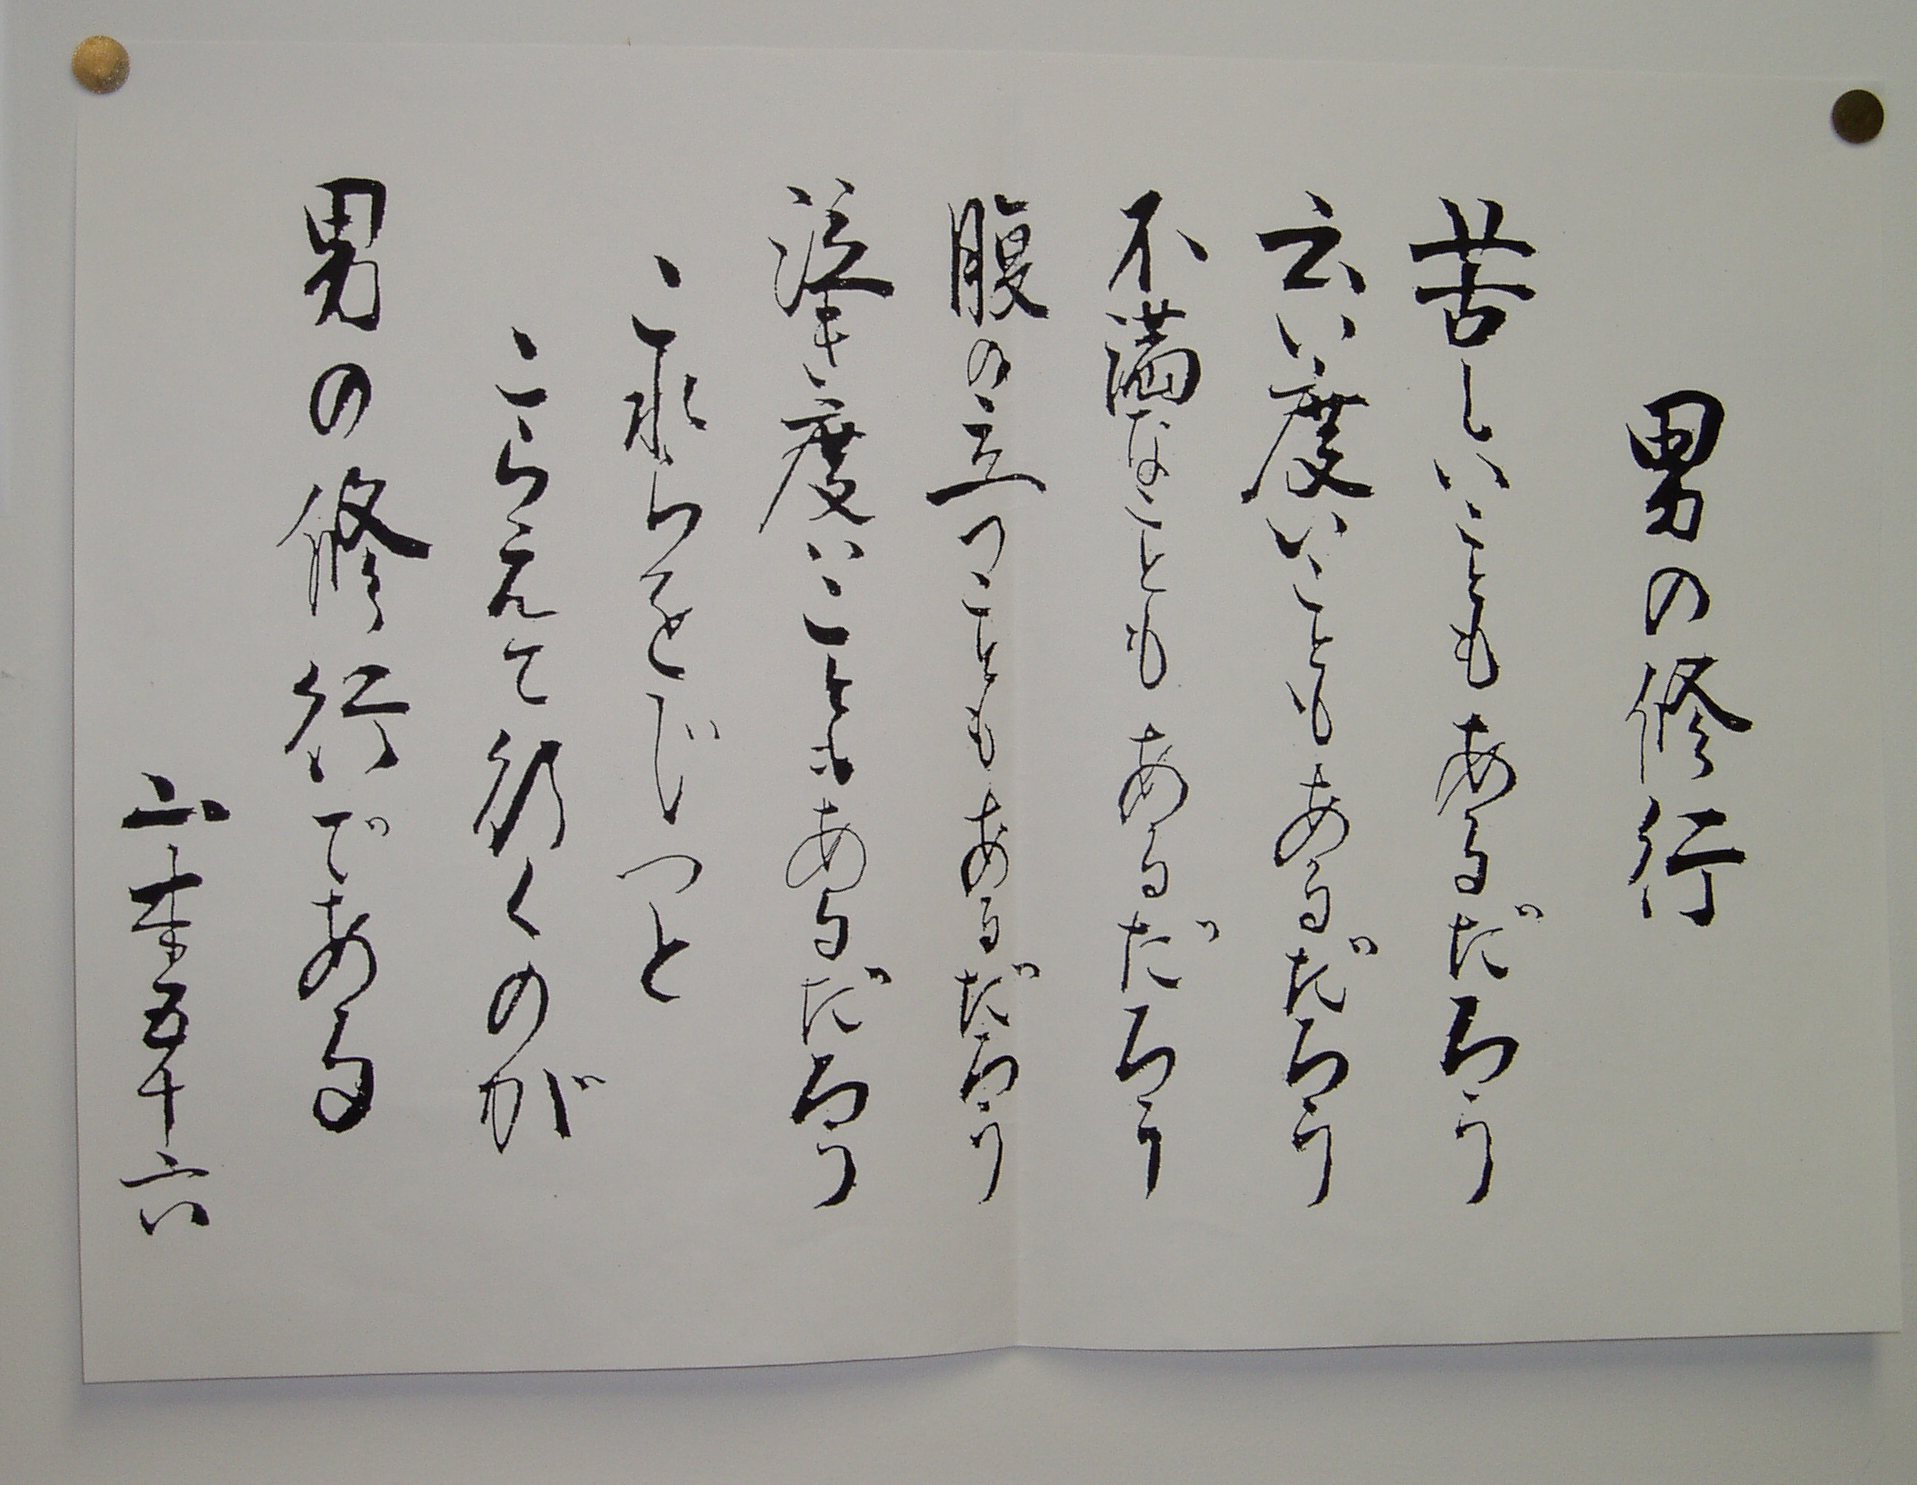 男の修行
苦しいこともあるだろう
云い度いこともあるだろう
不満なこともあるだろう
腹の立つこともあるだろう
泣き度いこともあるだろう
これらをじっと
こらえて行くのが
男の修行である
山本五十六